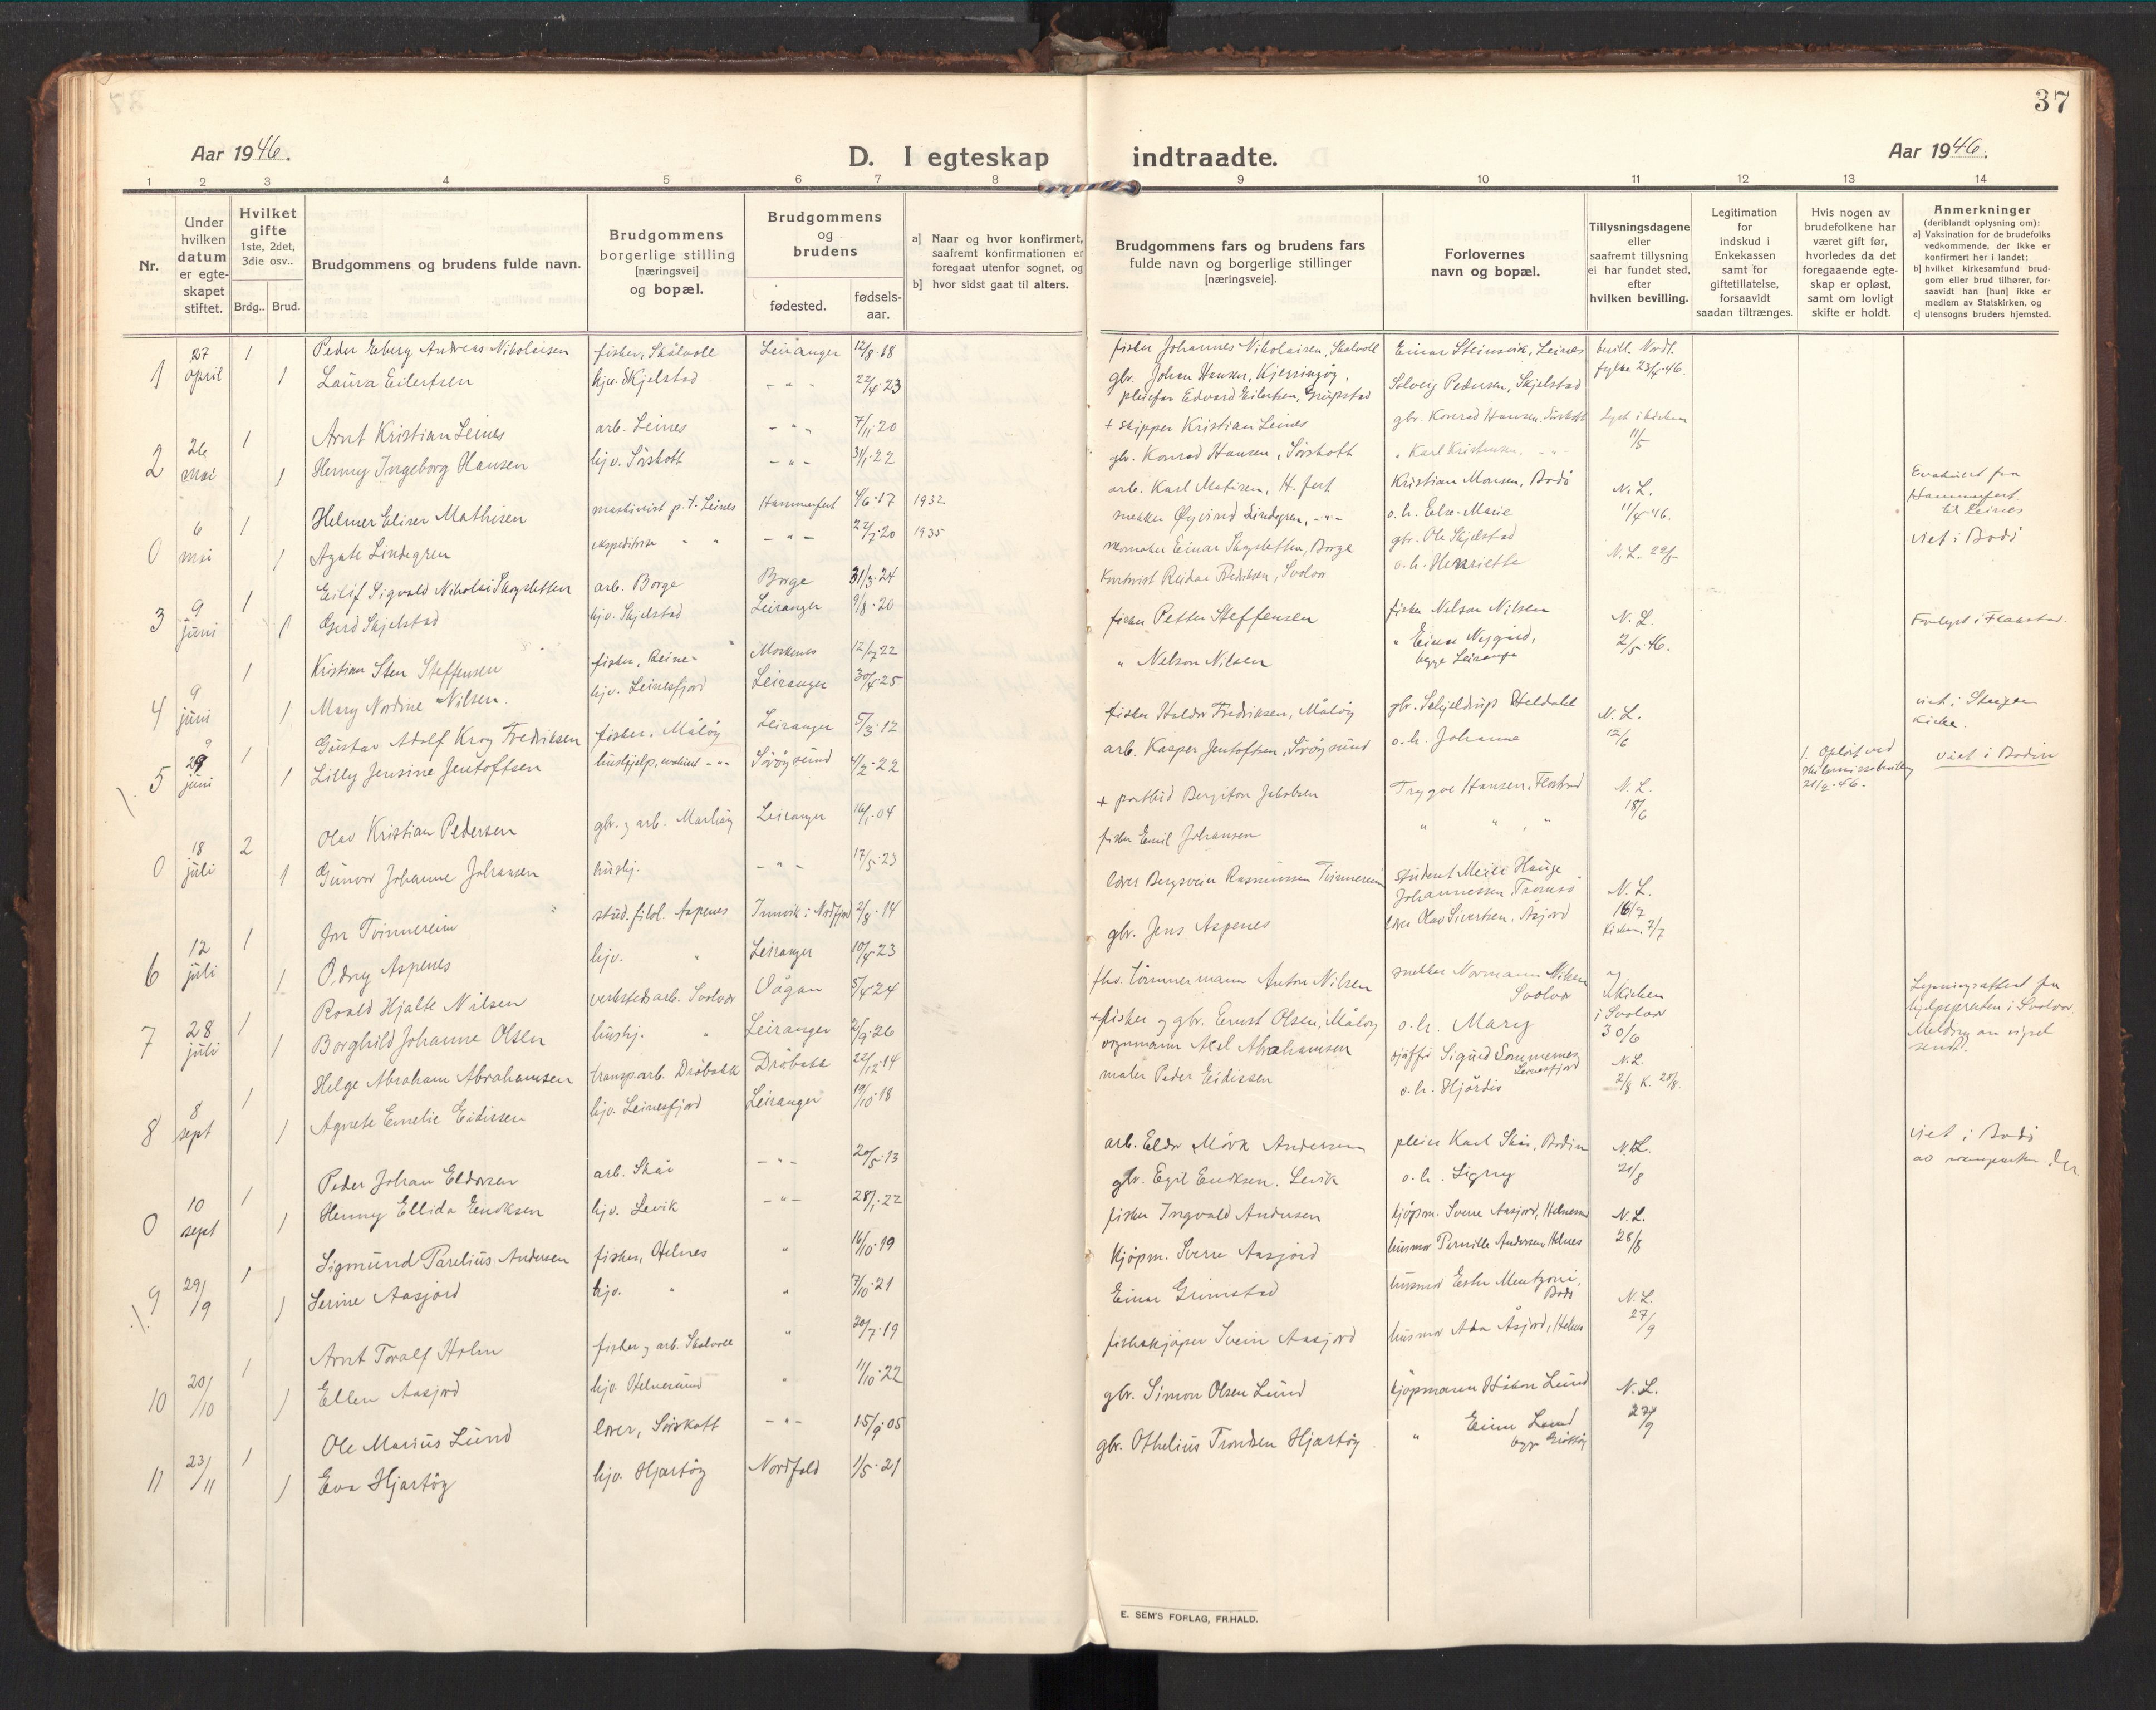 37
Aar 1946.
D. I egteskap indtraadte.
Aar 1946.
1 2 3 4 5 6 7 8 9 10 11 12 13 14
Nr.
Under hvilken datum er egte-skapet stiftet.
Hvilket gifte 1ste, 2det, 3die osv..
Brdg.. Brud.
Brudgommens og brudens fulde navn.
Brudgommens borgerlige stilling [næringsvei] og bopæl.
Brudgommens og brudens
fødested.
fødsels-aar.
a] Naar og hvor konfirmert, saafremt konfirmationen er foregaat utenfor sognet, og
b] hvor sidst gaat til alters.
Brudgommens fars og brudens fars fulde navn og borgerlige stillinger [næringsveie].
Forlovernes navn og bopæl.
Tillysningsdagene eller saafremt tillysning ei har fundet sted, efter hvilken bevilling.
Legitimation for indskud i Enkekassen samt for giftetillatelse, forsaavidt saadan tiltrænges.
Hvis nogen av brudefolkene har været gift før, hvorledes da det foregaaende egte-skap er opløst, samt om lovligt skifte er holdt.
Anmerkninger (deriblandt oplysning om):
a] Vaksination for de brudefolks vedkommende, der ikke er konfirmert her i landet;
b] hvilket kirkesamfund brud-gom eller brud tilhører, for-saavidt han [hun] ikke er medlem av Statskirken, og
c] utensogns bruders hjemsted.
1 27 april 1 Peder Andreas Nikolaisen fisker, Skålvoll Leiranger 12/8.18 fisker Johannes Nikolaisen, Skålvoll Einar Steinsvik, Leines bevill. Nordl. fylke 23/4.46.
1 Laura Eilertsen hjv. Skjelstad - " - 22/4.23 gbr. Johan Hansen, Kjerringøy, Solveig Pedersen, Skjelstad
pleiefar Edvard Eilertsen,
2 26 mai 1 Arnt Kristian Leines arb. Leines - " - 7/11.20 + skipper Kristian Leines gbr. Konrad Hansen, Sørskott lyst i kirken 11/5
1 Henny Ingeborg Hansen hjv. Sørskott - " - 31/1.22 gbr. Konrad Hansen, Sørskott " Karl Kristensen. - " -
0 6 mai 1 Helmer Eliser Mathisen maskinist p.t. Leines Hammerfest 4/6.17 1932 arb. Karl Matisen, H.fest Kristian Monsen, Bodø N.L. 11/4.46. Evakuert fra Hammerfest. til Leines
1 Agate Lindegren ekspeditrise " " - " - 22/7.20 1935 snekker Øyvind Lindegren, - " - o.h. Else-Marie viet i Bodø
3 9 juni 1 Eilif Sigvald Nikolai Skogsletten arb. Borge Borge 31/3.24 skomaker Einar Skogsletten, Borge gbr. Ole Skjelstad N.L. 22/5
1 Gerd Skjelstad hjv. Skjelstad Leiranger 9/8.20 Reidar Fredriksen, Svolvær o.h. Henriette
4 9 juni 1 Kristian Sten Steffensen fisker, Reine Moskenes 12/7.22 fisker Petter Steffensen fisker Nelson Nilsen N.L. 2/5.46. Forlyst i Flakstad.
1 Mary Nordine Nilsen. hjv. Leinesfjord Leiranger 30/4.25 " Nelson Nilsen " Einar Nygård, begge Leiranger
5 29 juni 1 Gustav Adolf Krog Fredriksen fisker, Måløy Leiranger 5/3.12 fisker Haldor Fredriksen, Måløy gbr. Schjeldrup Heldahl N.L. 12/6 viet i Steigen kirke.
1 Lilly Jensine Jentoftsen hushjelp, - " - Sørøysund 4/2.22 arb. Kasper Jentoftsen, Sørøysund o.h. Johanne
0 18 juli 2 Olav Kristian Pedersen gbr. og arb. Leiranger 16/1.04 + postbud Bergiton Jakobsen Trygve Hansen, N.L. 18/6 1. Opløst ved skilsmissebevilling 21/2.46. viet i Bodin
1 Gunvor Johanne Johansen hushj. - " - 17/5.23 fisker Emil Johansen " " , "
6 12 juli 1 Jon Tvinnereim stud. filol. Aspenes Innvik i Nordfjord 2/8.14 lærer Bergsvein Rasmussen Tvinnereim student Hauge Johannessen, Tromsø N.L. 16/7 kirken 7/7
1 Odny Aspenes hjv. " Leiranger 10/4.23 gbr. Jens Aspenes lærer Olav Sivertsen, Åsjord
7 28 juli 1 Roald Hjalte Nilsen verkstedsarb. Svolvær Vågan 5/4.24 fhv. tømmermann Anton Nilsen snekker Normann Nilsen Svolvær kirken i Svolvær 30/6 Lysningsattest fra hjelpepresten i Svolvær.
1 Borghild Johanne Olsen hushj. " Leiranger 2/9.26 + fisker og gbr. Ernst Olsen, Måløy o.h. Mary Melding om vigsel sendt.
8 8 sept 1 Helge Abraham Abrahamsen transp.arb. Drøbakk Drøbakk 22/12.14 vognmann Axel Abrahamsen sjåfør Sigurd Sommernes Leinesfjord N.L. 2/8 K. 28/8.
1 Agnete Emelie Eidissen hjv. Leinesfjord Leiranger 19/10.18 maler Peder Eidissen o.h. Hjørdis
0 10 sept 1 Peder Johan Eldorsen arb. Skåi - " - 20/5.13 arb. Eldor Mörk Andersen Karl Skåi, Bodin N.L. 21/8 viet i Bodø av der
1 Henny Ellida Eriksen hjv. Levik - " - 28/1.22 gbr. Egil Eriksen. Levik o.h. Signy
9 29/9 1 Sigmund Parelius Andersen fisker, Helnes " 16/10.19 fisker Ingvald Andersen kjøpm. Sverre Aasjord, Helnessund N.L. 28/8
1 Serine Aasjord hjv. " " 7/10.21 kjøpm. Sverre Aasjord husmor Pernille Andersen, Helnes
10 20/10 1 Arnt Toralf Holm fisker og arb. Skålvoll " 20/7.19 Einar Grimstad husmor Ester Mentzoni, Bodø N.L. 27/9
1 Ellen Aasjord hjv. Helnessund " 11/10.22 fiskekjøper Svein Aasjord husmor Asta Åsjord, Helnes
11 23/11 1 Ole Marius Lund lærer, Sørskott - " - 15/9.05 gbr. Simon Olsen Lund kjøpmann Håkon Lund N.L. 27/9
1 Eva Hjartøy hjv. Hjartøy Nordfold 1/5.21 gbr. Othelius Trondsen Hjartøy. " Einar Lund begge
E. SEM'S FORLAG, FR.HALD.